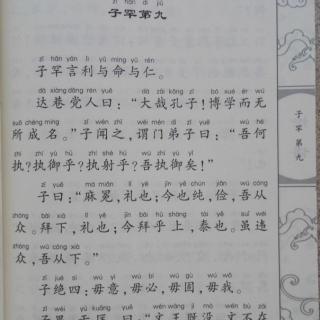 zǐ hǎn dì jiǔ
子罕第九
zǐ hǎn yán lì yǔ mìng yǔ rén
子罕言利与命与仁。
dá xiàng dǎng rén yuē dà zāi kǒng zǐ bó xué ér wú
达巷党人曰：“大哉孔子！博学而无
suǒ chéng míng zǐ wén zhī wèi mén dì zǐ yuē wú hé
所成名。”子闻之，谓门弟子曰：“吾何
zhí zhí yù hū zhí shè hū wú zhí yù yǐ
执？执御乎？执射乎？吾执御矣！”
zǐ yuē má miǎn lǐ yě jīn yě chún jiǎn wú cóng
子曰：“麻冕，礼也；今也纯，俭，吾从
zhòng bài xià lǐ yě jīn bài hū shàng tài yě suī wéi
众。拜下，礼也；今拜乎上，泰也。虽违
zhòng wú cóng xià
众，吾从下。”
zǐ jué sì wú yì wú bì wú gù wú wǒ
子绝四：毋意，毋必，毋固，毋我。
zǐ wèi yú kuāng yuē wén wáng jì mò wén bù zài
子畏于匡，曰：“文王既没，文不在
子罕第九